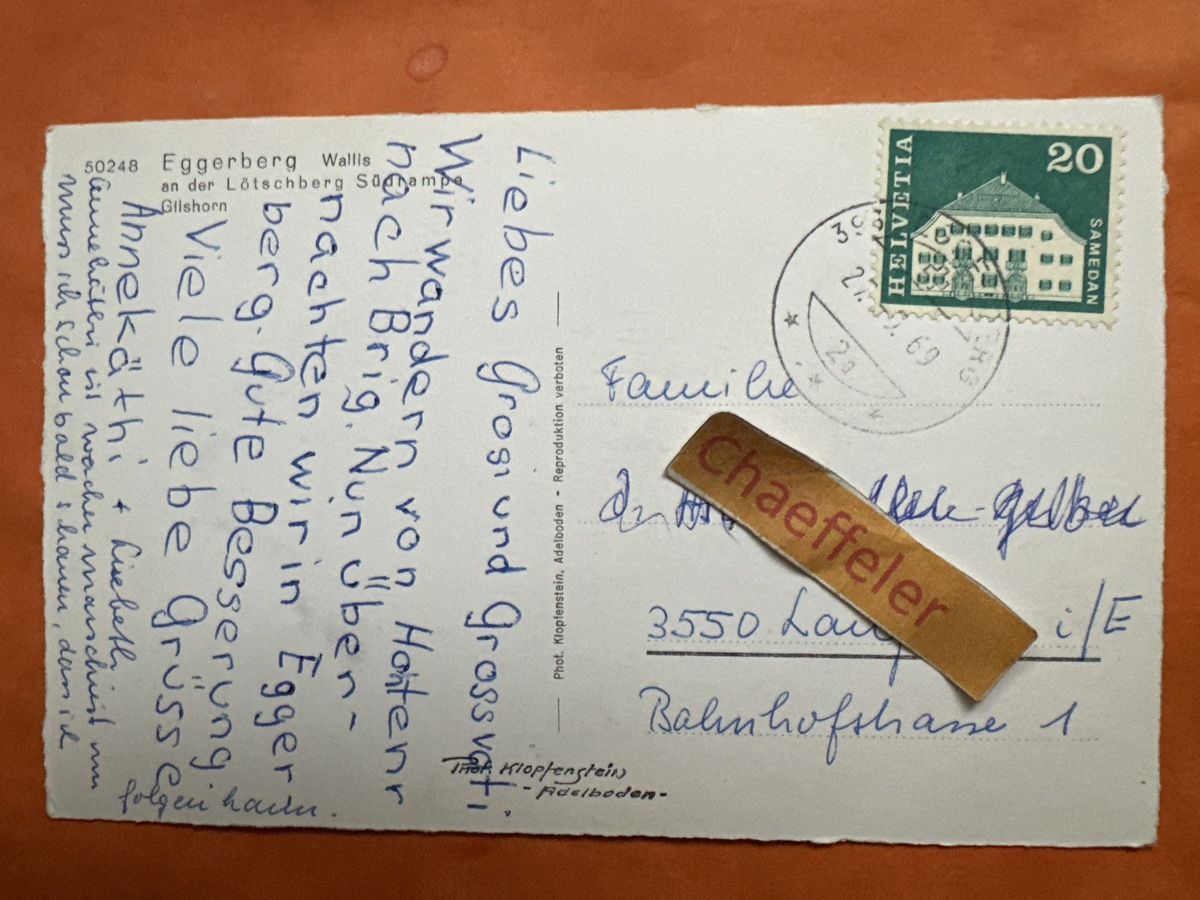 50248 Eggerberg Wallis
an der Lötschberg Südrampe
Glishorn
Liebes Grosi und Grossvati.
Wir wandern von Hohtenn
nach Brig. Nun über-
nachten wir in Egger
berg. Gute Besserung
Viele liebe Grüsse
Annekäthi + Liesbeth
Annekäthi ist wacker marschiert nun
muss ich schon bald schauen, dass ich
folgen kann.
Phot. Klopfenstein, Adelboden - Reproduktion verboten
Phot. Klopfenstein
- Adelboden -
HELVETIA
20
SAMEDAN
69
Familie
Chaeffeler
3550 i/E
Bahnhofstrasse 1